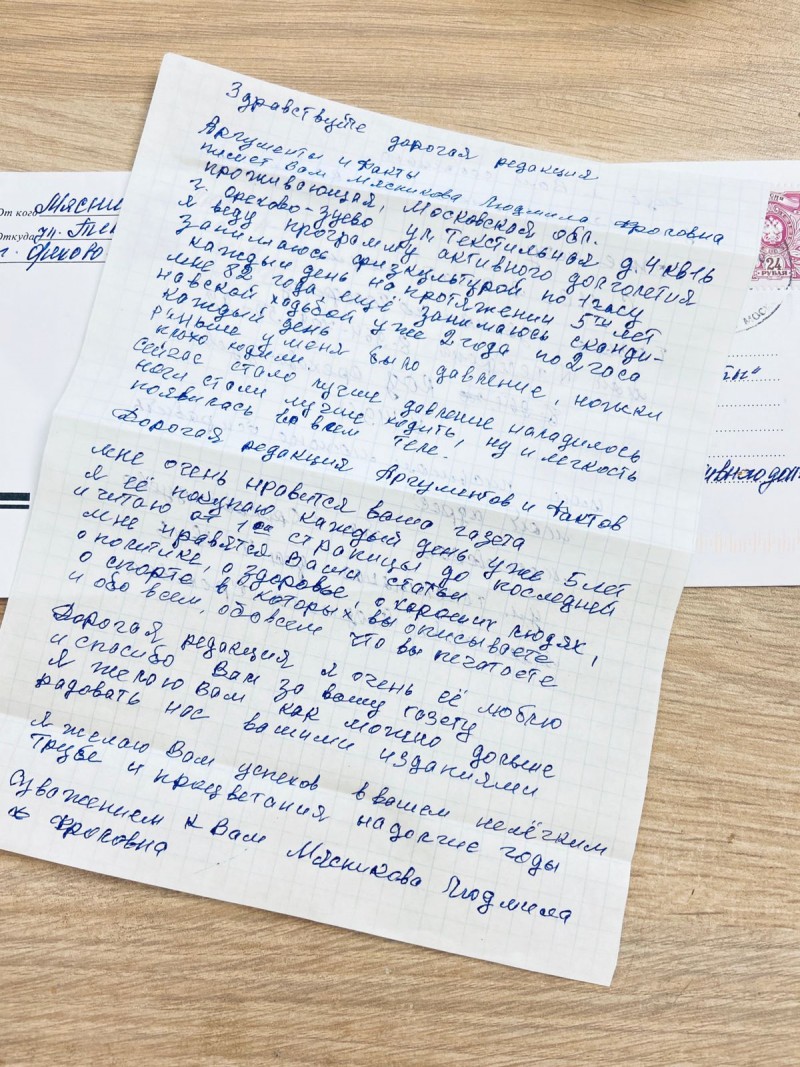 Здравствуйте дорогая редакция
Аргументы и Факты
пишет Вам Мясникова Людмила Фроловна
проживающая, Московской обл.
г. Орехово-Зуево ул Текстильная д. 4 кв 16
я веду программу активного долголетия
занимаюсь физкультурой по 1 часу
каждый день на протяжении 5ти лет
мне 82 года ещё занимаюсь сканди-
навской ходьбой уже 2 года по 2 часа
каждый день
раньше у меня было давление, ножки
плохо ходили
сейчас стало лучше, давление наладилось
ноги стали лучше ходить, ну и лёгкость
появилась во всем теле.
Дорогая редакция Аргументов и Фактов
мне очень нравится ваша газета
я её покупаю каждый день уже 5 лет
и читаю от 1ой страницы до последней
мне нравятся Ваши статьи
о политике, о здоровье, о хороших людях,
о спорте в которых вы описываете
и обо всем, обо всем что вы печатаете
Дорогая редакция я очень её люблю
и спасибо Вам за вашу газету
я желаю Вам как можно дольше
радовать нас вашими изданиями
я желаю Вам успехов в вашем нелёгким
трубе и процветания на долгие годы
с уважением к Вам Мясникова Людмила
Фроловна
От кого Мясни
Откуда ул. Тек
г. Орехово
24
РУБЛЯ
МОС
ты"
ивного дол